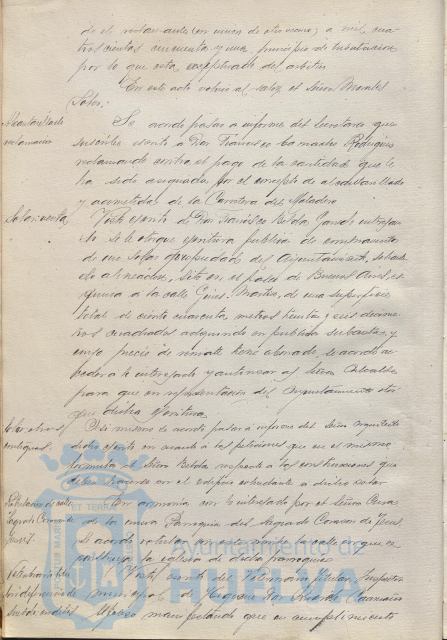 de el reclamante (en union de otro vecino) a mil cua-
tros cientos cincuenta y una, principio de tributacion
por lo que esta exceptuado del arbitrio
En este acto volvió al salon el Señor Morales
Solor:
Alcantarillado
reclamacion
Se acordó pasar a informe del Secretario que
suscribe escrito de Don Francisco Camacho Rodriguez
reclamando contra el pago de la cantidad que le
ha sido asignada por el concepto de alcantarillado
y acometidas de la Carretera del Matadero
Solar: venta,
Visto escrito de Don Francisco Betola
se le otorgue escritura publica de compraventa
de un Solar propiedad del Ayuntamiento,
sito en el paseo de Buenos Aires, es-
quina a la calle Gines Martin, de una superficie
total de ciento cuarenta metros treinta y seis decime-
tros cuadrados adquirido en publica subasta y
cuyo precio de remate tiene abonado, se acordó ac-
ceder a lo interesado y autorizar al Señor Alcalde
para que en representacion del Ayuntamiento otor-
gue dicha escritura
Así mismo se acordó pasar a informe del Señor Arquitecto
contiguas.
dicho escrito en cuanto a las peticiones que en el mismo
formula el Señor Betola respecto a las construcciones que
en el edificio colindante a dicho solar
Rotulacion calle
Sagrado Corazon de
Jesus
En armonia con lo interesado por el Señor Cura
de la nueva Parroquia del Sagrado Corazon de Jesus,
se acordó rotular con este nombre la calle en que se
la Iglesia de dicha parroquia
Visto escrito del Veterinario titular, Inspector
municipal de
manifestando que en cumplimiento
Ayuntamiento de
HUELVA